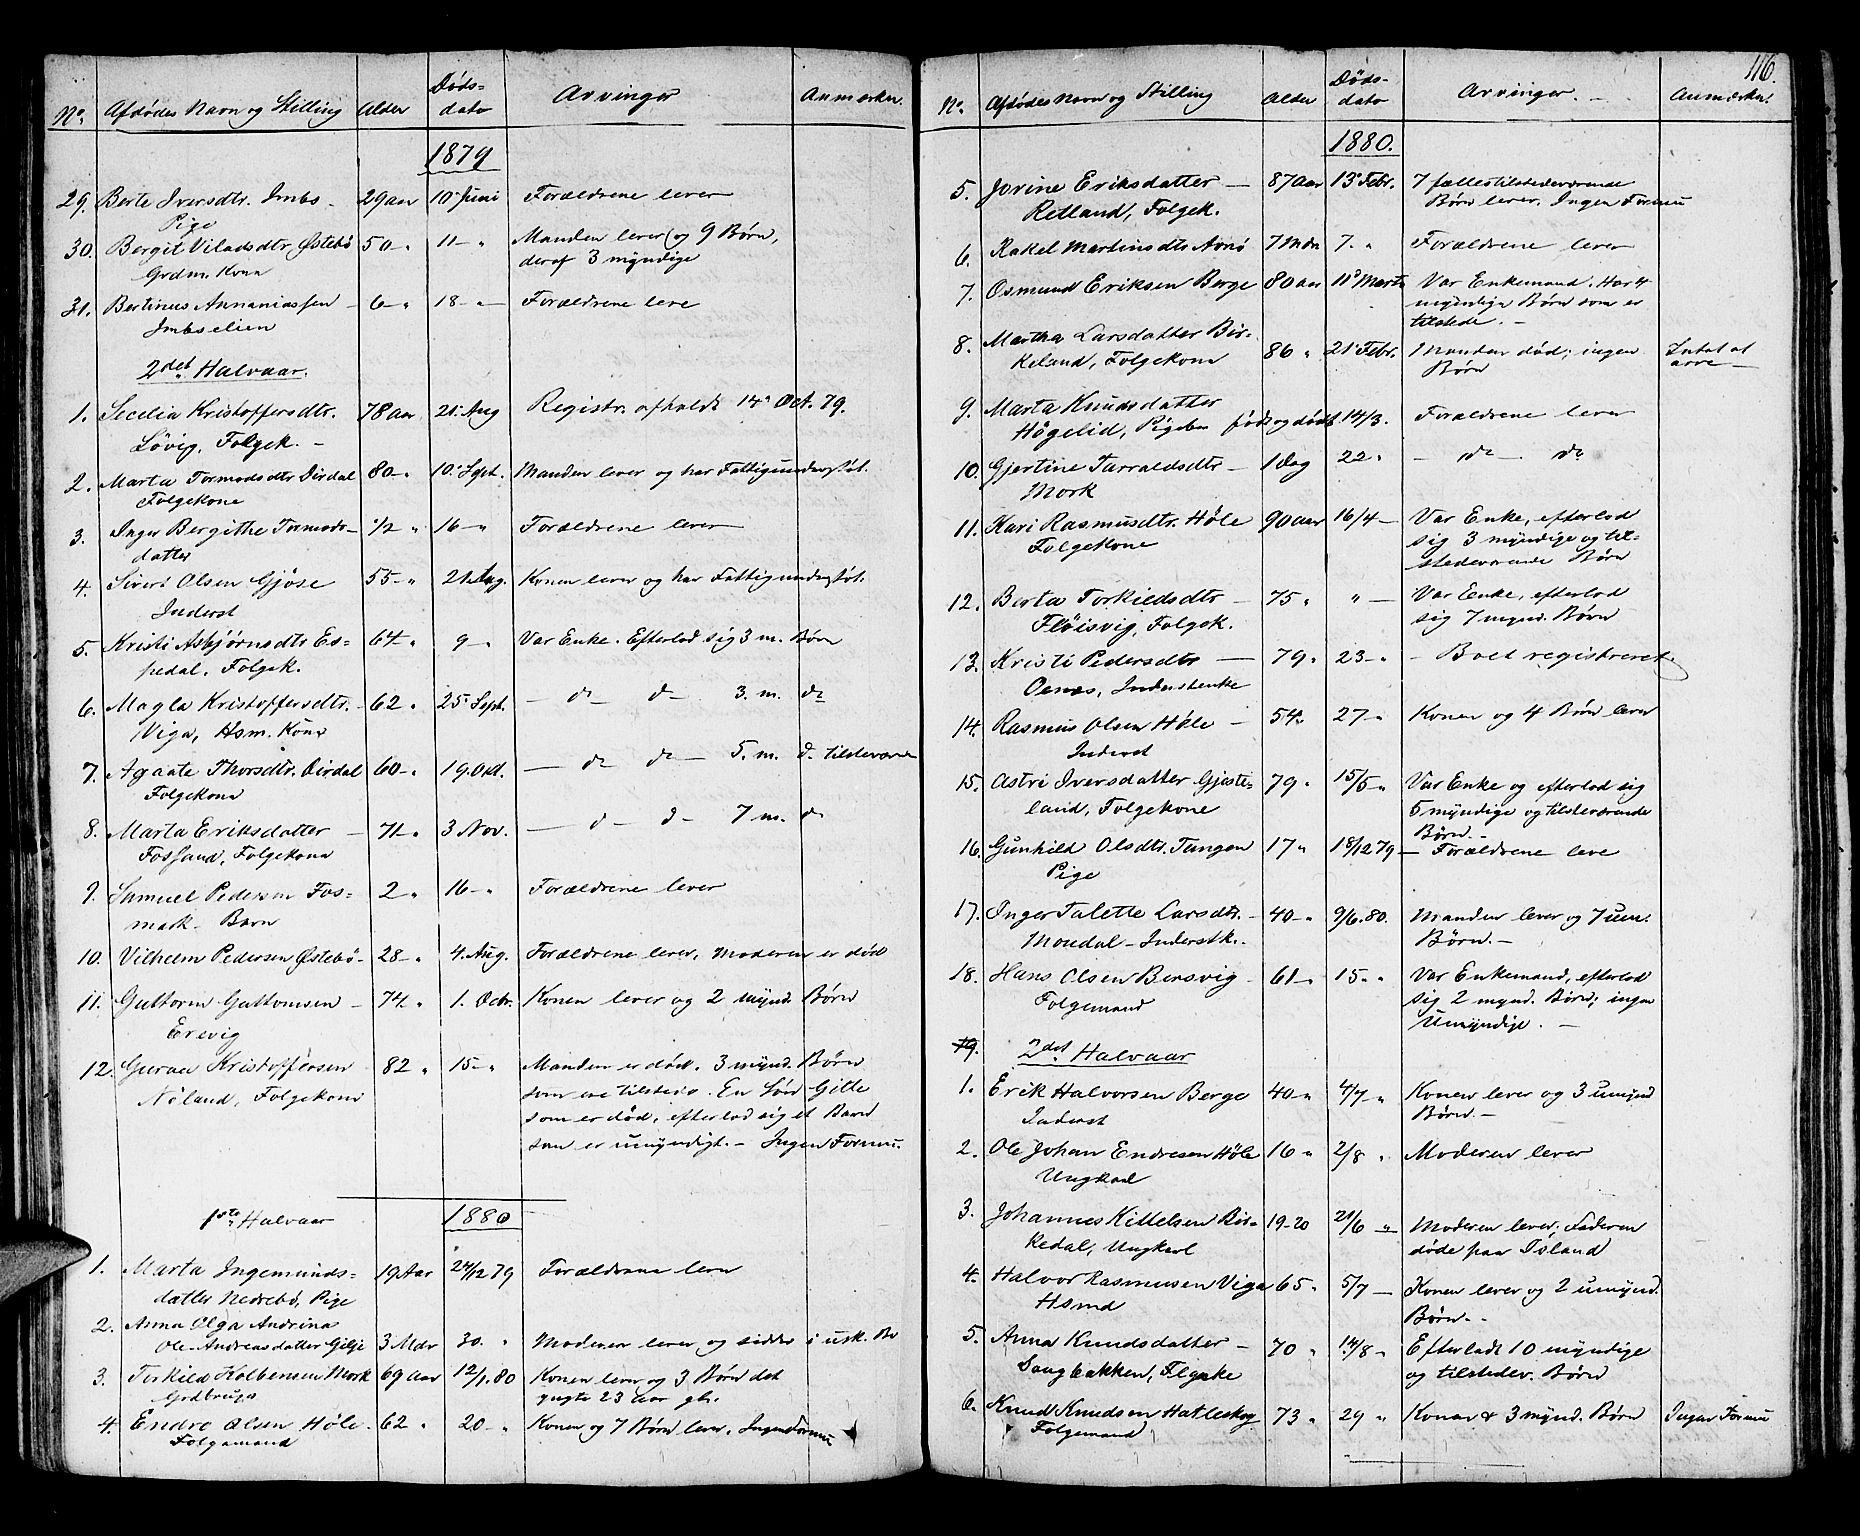 No. Afdødes Navn og Stilling Alder Døds-dato Arvinger Anmærkn.
1879
29. Berte Iversdtr. Imbs- 29 aar 10 Juni Forældrene lever
Pige
30. Bergit Viladsdtr. Østebö 50 - " 11 - " Manden lever og 9 Børn,
Grdm. Kone deraf 3 myndige
31. Bertinus Annaniassen - 6 " 18 - " Forældrene leve
Imbselien
2det Halvaar.
1. Secelia Kristoffersdtr. 78 aar 21. Aug Registr. afholdt 14. Oct. 79.
Lövig, Folgek. -
2. Marta Tormodsdtr Dirdal 80 - " 10. Sept. Manden lever og har Fattigunderstøt.
Folgekone
3. Inger Bergithe Tormods- 1/2 " 16 - " Forældrene lever
datter
4. Sivert Olsen Gjöse 55 - " 21. Aug. Konen lever og har Fattigunderstøt.
Inderst
5. Kristi Asbjørnsdtr Es- 64 - " 9 - " Var Enke. Efterlod sig 3 m. Børn
pedal, Folgek.
6. Magla Kristoffersdtr. - 62 " 25. Sept. - do do - 3. m. do
Viga, Hsm. Kone
7. Agaate Thorsdtr. Dirdal 60 - " 19. Okt. - do do - 5. m. d. tilstevær
Folgekone
8. Marta Eriksdatter - 71 - " 3 Nov. - d - d - 7 m. d
Fossand, Folgekone
9. Samuel Pedersen Fos- 2 - " 16 - " Forældrene lever
mark. Barn
10. Vilhelm Pedersen Østebö - 28 - " 4. Aug. Forældrene lever, Moderen er død
11. Guttorm Guttormsen - 74 " 1. Octr. Konen lever og 2 mynd. Børn
Erevig
12. Guroa Kristoffersen 82 " 15 - " Manden er død. 3 mynd. Børn
Nöland, Folgekone som ere tilstede. En Søn Gitle
som er död, efterlod sig et Barn
som er umyndigt. - Ingen Formu.
1ste Halvaar 1880
1. Marta Ingemunds- 19 Aar 24/12 79 Forældrene lever
datter Nedrebö, Pige
2. Anna Olga Andrina
Ole-Andreasdatter Gilje 3 Mdr 30. " Moderen lever og sidder i usk. Bo
3. Torkild Kolbensen Mork 69 aar 12/1. 80 Konen lever og 3 Børn det
Grdbruger yngste 23 Aar gl.
4. Endre Olsen Höle. 62 " 20 - " Konen og 7 Børn lever. Ingen Formue
Folgemand
116.
No. Afdødes Navn og Stilling Alder Døds-dato Arvinger. - Anmærkn.
1880.
5. Jorine Eriksdatter - 87 Aar 13 Febr. 7 fællestilstedeværende
Retland, Folgek. Børn lever. Ingen Formu
6. Rakel Martinsdtr Avnö 7 Mdr 7. " Forældrene lever
7. Osmund Eriksen Berge 80 aar 11 Marts Var Enkemand. Har 4
myndige Børn som er
tilstede. -
8. Martha Larsdatter Bir-
keland, Folgekone 86 " 21 Febr. Manden død; ingen Intet at
Börn arve -
9. Marta Knudsdatter
Högelid, Pigebn født og død 14/3. Forældrene lever
10. Gjertine Tarraldsdtr - 1 Dag 22. " - do - do
Mork
11. Kari Rasmusdtr. Höle 90 aar 16/4 - Var Enke, efterlod
Folgekone sig 3 myndige og til-
stedeværende Börn
12. Berta Torkildsdtr - 75 " " - Var Enke, efterlod
Flöisvig, Folgek. sig 7 mynd. Børn
13. Kristi Pedersdtr - 79 " 23 - " - Boet registreret.
Oenes, Inderstenke
14. Rasmus Olsen Höle - 54 " 27 - " Konen og 4 Børn lever
Inderst
15. Astri Iversdatter Gjeste- 79 " 15/5 - " Var Enke og efterlod sig
land, Folgekone 5 myndige og tilstevær­ende
Børn. -
16. Gunhild Olsdtr. Tangen 17 " 18/12 79 - Forældrene leve
Pige
17. Inger Talette Larsdtr. - 40 - " 9/6. 80. Manden lever og 7 um.
Mondal - Inderstk. Børn. -
18. Hans Olsen Bersvig - 61 - " 15 - " Var Enkemand, efterlod
Folgemand sig 2 mynd. Børn; ingen
Umyndige. -
19. 2det Halvaar
1. Erik Halvorsen Berge 40 - " 4/7 - " Konen lever og 3 umynd
Inderst Børn -
2. Ole Johan Endresen Höle 16 " 2/8 " Moderen lever
Ungkarl
3. Johannes Kittelsen Bir- 19-20 21/6 " Moderen lever; Faderen
kedal, Ungkarl döde paa Island
4. Halvor Rasmusen Viga 65 " 5/7 - Konen lever og 2 umynd.
Hsmd Børn. -
5. Anna Knudsdatter - 70 " 14/8 " Efterladt 10 myndige
Saugbakken, Flgeke og tilstedev. Børn
6. Knud Knudsen Hatleskog 73 " 29 " Konen & 3 mynd. Børn Ingen Formu
Folgemand